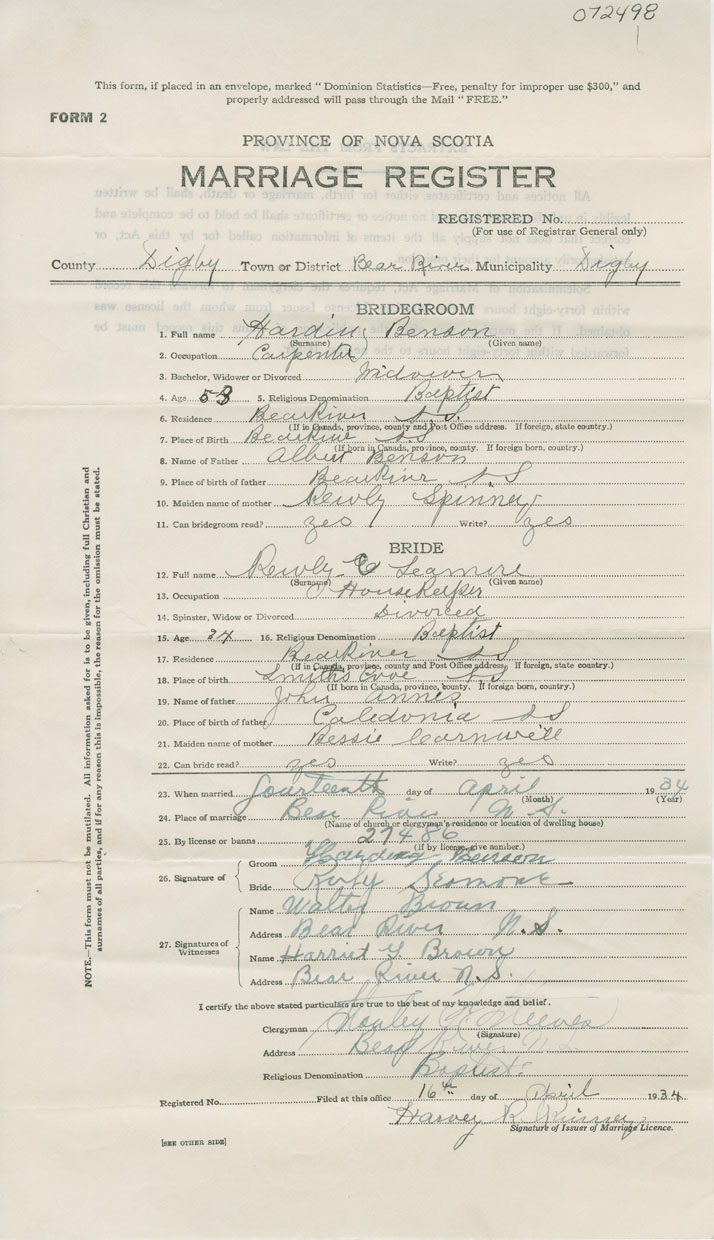 072498
This form, if placed in an envelope, marked "Dominion Statistics—Free, penalty for improper use $300," and
properly addressed will pass through the Mail "FREE."
FORM 2
PROVINCE OF NOVA SCOTIA
MARRIAGE REGISTER
REGISTERED No.
(For use of Registrar General only)
County Digby Town or District Bear River Municipality Digby
BRIDEGROOM
1. Full name Harding Benson
(Surname) (Given name)
2. Occupation Carpenter
3. Bachelor, Widower or Divorced Widower
4. Age 58 5. Religious Denomination Baptist
6. Residence Bear River N.S.
(If in Canada, province, county and Post Office address. If foreign, state country.)
7. Place of Birth Bear River N.S
(If born in Canada, province, county. If foreign born, country.)
8. Name of Father Albert Benson
9. Place of birth of father Bear River N S
10. Maiden name of mother Spinney
11. Can bridegroom read? yes Write? yes
BRIDE
12. Full name
(Surname) (Given name)
13. Occupation HouseKeeper
14. Spinster, Widow or Divorced Divorced
15. Age 37 16. Religious Denomination Baptist
17. Residence Bear River N S
(If in Canada, province, county and Post Office address, If foreign, state country.)
18. Place of birth Smiths Cove N S
(If born in Canada, province, county. If foreign born, country.)
19. Name of father John Annis
20. Place of birth of father Caledonia N S
21. Maiden name of mother Bessie Cornwell
22. Can bride read? yes Write? yes
23. When married fourteenth day of April 1934
(Month) (Year)
24. Place of marriage Bear River N.S.
(Name of church or clergyman's residence or location of dwelling house)
25. By license or banns 27486
(If by license, give number.)
26. Signature of
Groom Harding Benson
Bride Ruby
27. Signatures of Witnesses
Name Walter Brown
Address Bear River N.S.
Name Harriet Y Brown
Address Bear River N.S.
I certify the above stated particulars are true to the best of my knowledge and belief.
Clergyman Neeves
(Signature)
Address Bear River N.S.
Religious Denomination Baptist
Registered No. Filed at this office 16th day of April 1934
Harvey R.
Signature of Issuer of Marriage Licence.
[SEE OTHER SIDE]
NOTE.—This form must not be mutilated. All information asked for is to be given, including full Christian and
surnames of all parties, and if for any reason this is impossible, the reason for the omission must be stated.